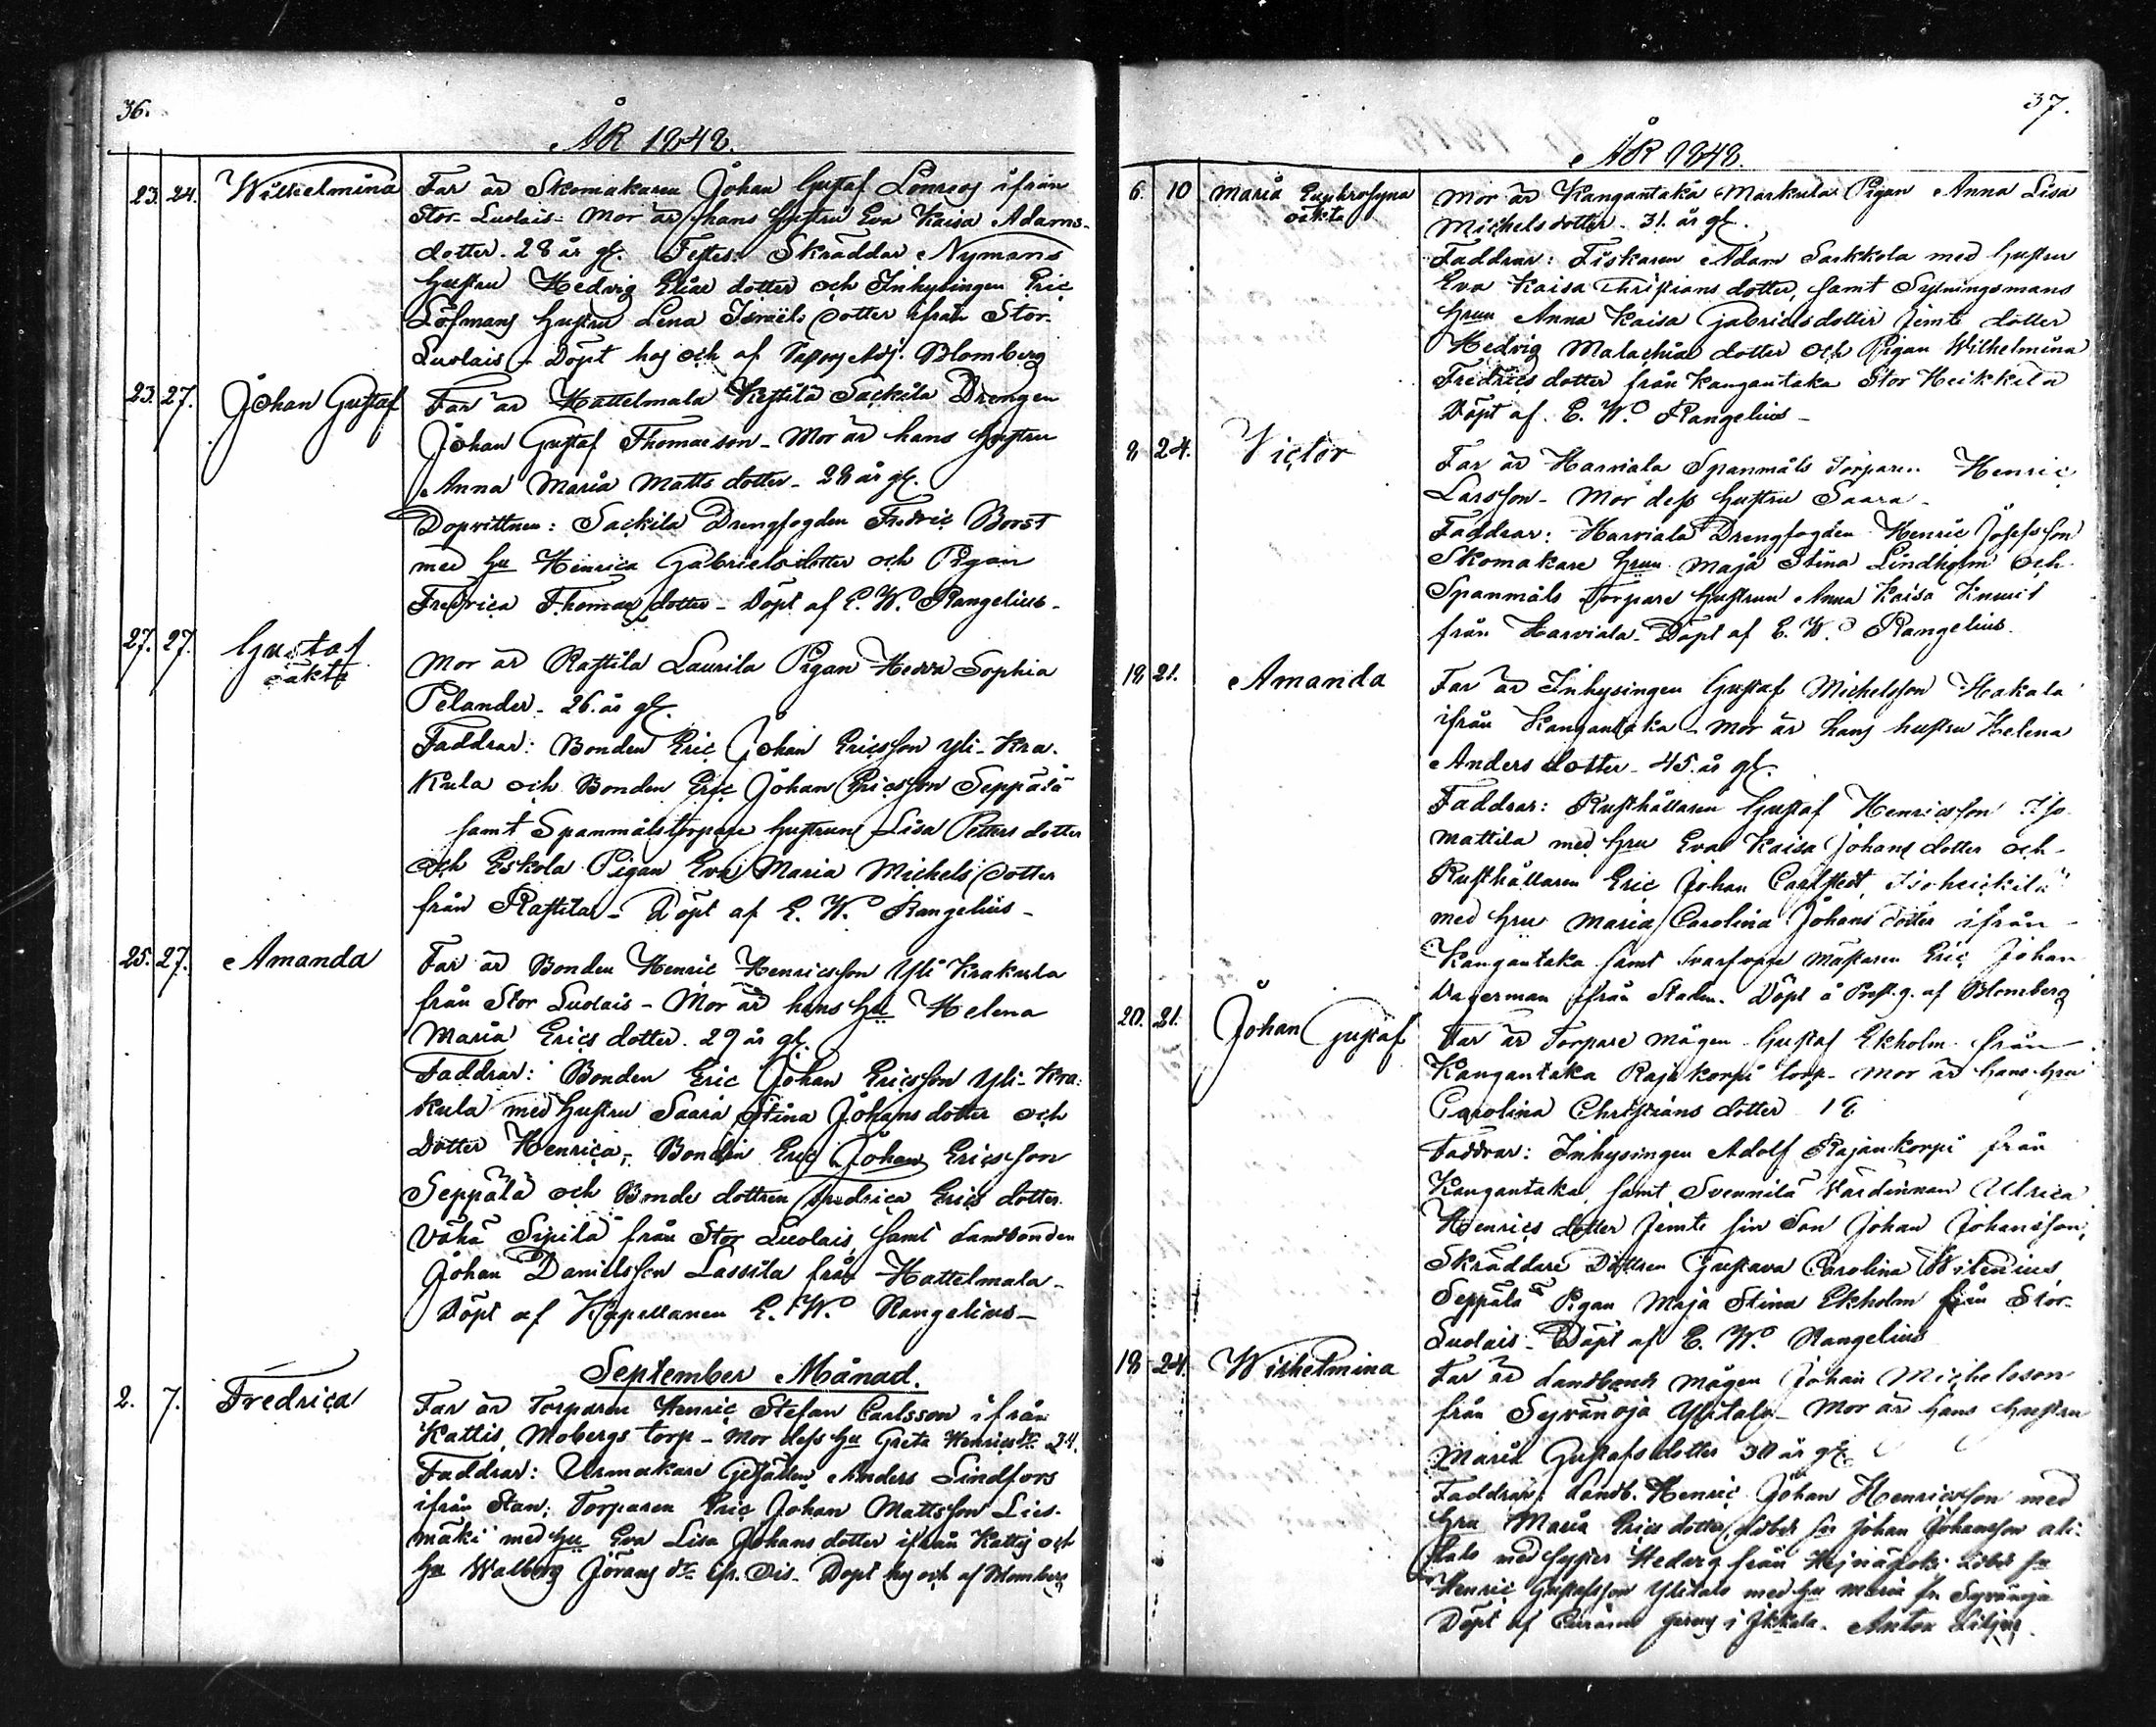 36.
ÅR 1848.
23. 24. Wilhelmina
Far är Skomakaren Johan Gustaf Lönroos ifrån
Stor-Luolais - Mor är hans Hustru Eva Kaisa Adams-
dotter. 28 år gl. Testes: Skräddar Nymans
Hustru Hedvig Eliæ dotter och Inhysingen Eric
Löfmans Hustru Lena Israels dotter ifrån Stor-
Luolais - Döpt hos och af Adj. Blomberg
23. 27. Johan Gustaf
Far är Hattelmala Kestilä Sackila Drengen
Johan Gustaf Thomæson - Mor är hans Hustru
Anna Maria Matts dotter - 28 år gl.
Dopvittnen: Sackila Drengfogden Fredric Borst
med Hu Henrica Gabriels dotter och Pigan
Fredrica Thomæ dotter - Döpt af E. W. Rangelius -
27. 27. Gustaf
oäkta
Mor är Rastila Laurila Pigan Hedva Sophia
Pelander - 26. år gl.
Faddrar: Bonden Eric Johan Ericsson Yli-Kra-
kula och Bonden Eric Johan Ericsson Seppälä
samt Spanmålstorpare Hustrun Lisa Petters dotter
och Eskola Pigan Eva Maria Michels dotter
från Rastila - Döpt af E. W. Rangelius -
25. 27. Amanda
Far är Bonden Henric Henricsson Yli Krakula
från Stor Luolais - Mor är hans Hu Helena
Maria Erics dotter. 29 år gl.
Faddrar: Bonden Eric Johan Ericsson Yli-Kra-
kula med Hustru Saara Stina Johans dotter och
Dotter Henrica, Bonden Eric Johan Ericsson
Seppälä och Bonde dottren Fredrica Erics dotter
Vähä Sipilä från Stor Luolais, samt Landbonden
Johan Danielsson Lassila från Hattelmala -
Döpt af Kapellanen E. W. Rangelius -
September Månad.
2. 7. Fredrica
Far är Torparen Henric Stefan Carlsson ifrån
Kattis, Mobergs torp - Mor dess Hu Greta Henricsdr 24.
Faddrar: Urmakare Gesällen Anders Lindfors
ifrån Stan; Torparen Eric Johan Mattsson Lies-
mäki med Hu Eva Lisa Johans dotter ifrån Kattis och
Hu Walborg Jörans dr ifr. Ois - Döpt hos och af Blomberg
37.
ÅR 1848.
6. 10 Maria Euphrosyna
oäkta
Mor är Kangantaka Markula Pigan Anna Lisa
Michels dotter - 31. år gl.
Faddrar: Fiskaren Adam Sarkkola med Hustru
Eva Kaisa Christians dotter, samt Sytningsmans
Hrun Anna Kaisa Gabriels dotter jemte dotter
Hedvig Malachiæ dotter och Pigan Wilhelmina
Fredrics dotter från Kangantaka Stor Heikkilä
Döpt af E. W. Rangelius -
8 24. Victor
Far är Harviala Spanmåls Torparen Henric
Larsson - Mor dess Hustru Saara -
Faddrar: Harviala Drengfogden Henric Josefsson
Skomakare Hrun Maja Stina Lindholm och
Spanmåls Torpare Hustrun Anna Kaisa Knuut
från Harviala - Döpt af E. W. Rangelius.
18 21. Amanda
Far är Inhysingen Gustaf Michelsson Hakala
ifrån Kangantaka - Mor är hans hustru Helena
Anders dotter - 45. år gl.
Faddrar: Rusthållaren Gustaf Henricsson Iso
Mattila med Hru Eva Kaisa Johans dotter och
Rusthållaren Eric Johan Carlstedt, Isoheickilä
med Hru Maria Carolina Johans dotter ifrån
Kangantaka samt Svarfvare mästaren Eric Johan
Dagerman ifrån Staden. Döpt å Prest.g. af Blomberg
20. 21. Johan Gustaf
Far är Torpare mågen Gustaf Ekholm från
Kangantaka Rajakorpi torp - Mor är hans Hru
Carolina Christians dotter 18
Faddrar: Inhysingen Adolf Rajankorpi från
Kangantaka, samt Svennilä Värdinnan Ulrica
Henrics dotter jemte sin Son Johan Johansson,
Skräddare Dottren Gustava Carolina Wilenius,
Seppälä Pigan Maja Stina Ekholm från Stor-
Luolais - Döpt af E. W. Rangelius
18 24. Wilhelmina
Far är Landbonds mågen Johan Michelsson
från Syvänoja Ylitalo - Mor är hans Hustru
Maria Gustafs dotter 30 år gl.
Faddrar: Landb. Henric Johan Henricsson med
Hru Maria Erics dotter, Johan Johansson ali-
talo med syster Hedvig från
Henric Gustafsson Ylitalo med Hu Maria fr. Syvänoja
Döpt af i Anton Liljus.